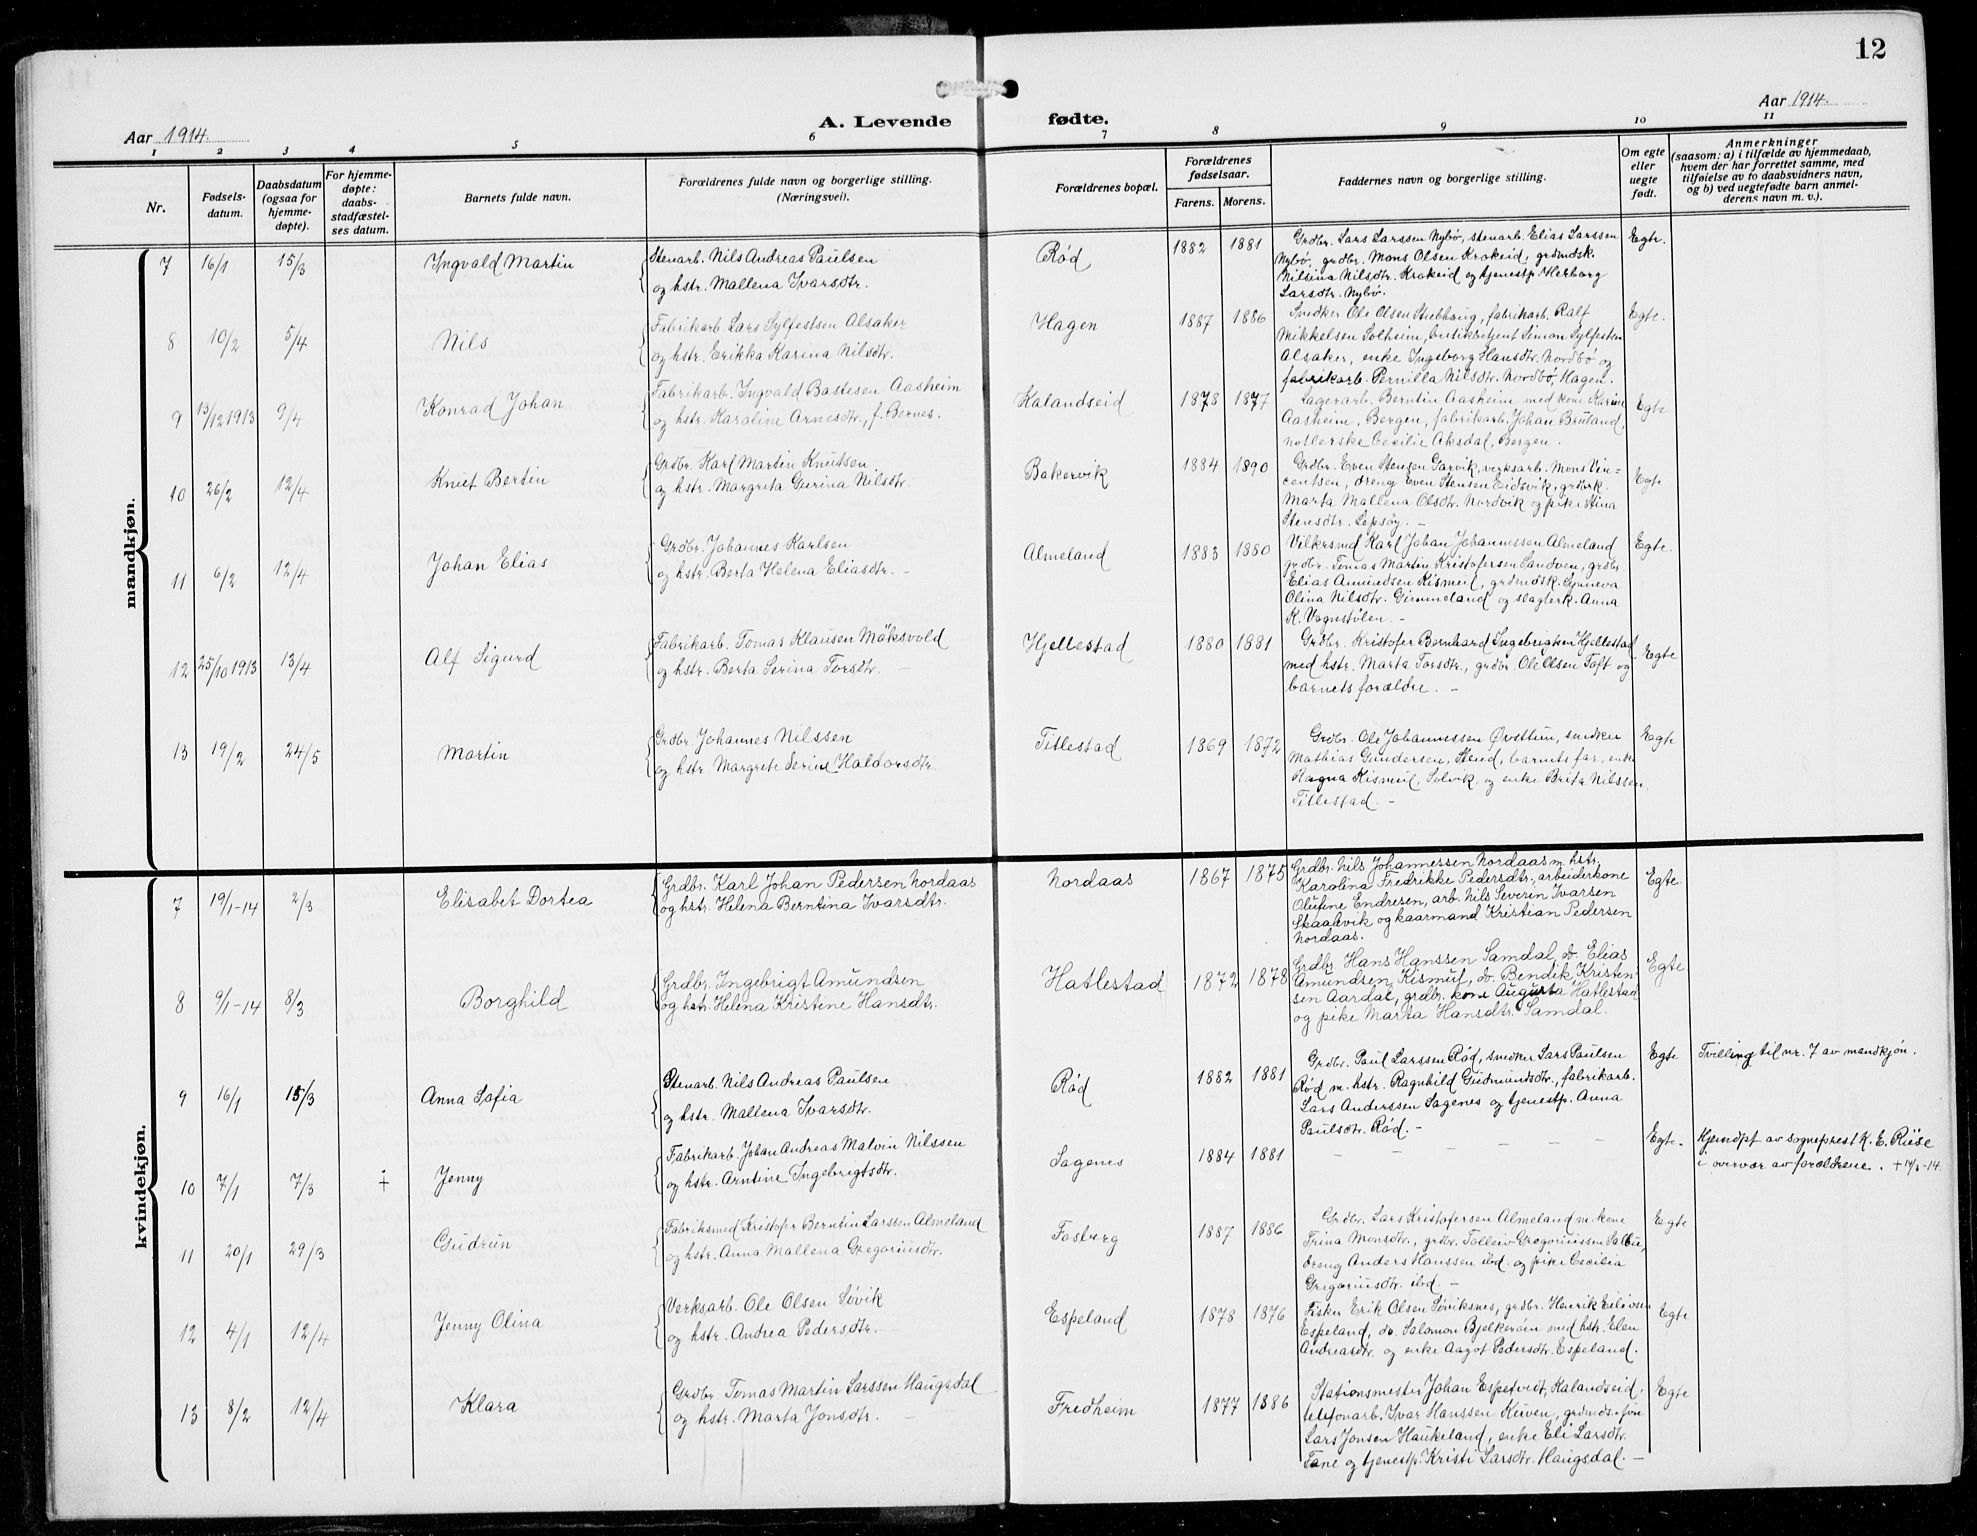 12
Aar 1914.
A. Levende fødte.
Aar 1914.
1 2 3 4 5 6 7 8 9 10 11
Nr.
Fødsels-
datum.
Daabsdatum
(ogsaa for
hjemme-
døpte).
For hjemme-
døpte:
daabs-
stadfæstel-
ses datum.
Barnets fulde navn.
Forældrenes fulde navn og borgerlige stilling.
(Næringsvei).
Forældrenes bopæl.
Forældrenes
fødselsaar.
Farens. Morens.
Faddernes navn og borgerlige stilling.
Om egte
eller
uegte
født.
Anmerkninger
(saasom: a) i tilfælde av hjemmedaab,
hvem der har forrettet samme, med
tilføielse av to daabsvidners navn,
og b) ved uegtefødte barn anmel-
derens navn m. v.).
mandkjøn.
7 16/1 15/3 Ingvald Martin
Stenarb. Nils Andreas Paulsen
og hstr. Mallena Ivarsdtr.
Rød 1882 1881
Grdbr. Lars Larssen Nybø, stenarb. Elias Larssen
Nybø, grdbr. Mons Olsen Krokeid, grdmdsk.
Nilsina Nilsdtr. Krokeid og tjenestp. Herborg
Larsdtr. Nybø.
Egte.
8 10/2 5/4 Nils
Fabrikarb. Lars Sylfestsen Alsaker
og hstr. Erikka Karina Nilsdtr.
Hagen 1887 1886
Snedker Ole Olsen Stielhaug, fabrikarb. Ralf
Mikkelsen Solheim, butikbetjent Simon Sylfestsen
Alsaker, enke Ingeborg Hansdtr. Nordbø og
fabrikarb. Pernilla Nilsdtr. Nordbø, Hagen.
Egte.
9 13/12 1913 9/4 Konrad Johan
Fabrikarb. Ingvald Bastesen Aasheim
og hstr. Karoline Arnesdtr., f. Bernes.
Kalandseid 1878 1877
Lagerarb. Berntin Aasheim med kone Karine
Aasheim, Bergen, fabrikarb. Johan Bruland,
Cecilie Aksdal, Bergen.
Egte
10 26/2 12/4 Knut Bertin
Grdbr. Karl Martin Knutsen
og hstr. Margreta Gurina Nilsdtr.
Bakervik 1884 1890
Grdbr. Even Stensen Garvik, verksarb. Mons Vin=
centsen, dreng Even Stensen Eidsvik, grdbrk.
Marta Mallena Olsdtr. Nordvik og pike Stina
Stensdtr. Lepsøy. –
Egte
11 6/2 12/4 Johan Elias
Grdbr. Johannes Karlsen
og hstr. Berta Helena Eliasdtr. –
Almeland 1883 1880
Karl Johan Johannessen Almeland
grdbr. Tomas Martin Kristofersen Sandven, grdbr.
Elias Amundsen Kismul, grdmdsk. Synneva
Olina Nilsdtr. Grimmeland og slagterk. Anna
K. Vognstølen. –
Egte.
12 25/10 1913 13/4 Alf Sigurd
Fabrikarb. Tomas Klausen Møksvold
og hstr. Berta Serina Torsdtr. –
Hjellestad 1880 1881
Grdbr. Kristofer Bernhard Ingebrigtsen Hjellestad
med hstr. Marta Torsdtr., grdbr. Ole Olsen Toft og
barnets forældre. –
Egte
13 19/2 24/5 Martin
Grdbr. Johannes Nilssen
og hstr. Margrete Serine Haldorsdtr.
Titlestad 1869 1872
Grdbr. Ole Johannessen Øvsttun, snedker
Mathias Gundersen, Stend, barnets far, enke
Ragna Kismul, Solvik, og enke Brita Nilssen,
Titlestad. –
Egte
kvindekjøn.
7 19/1-14 2/3 Elisabet Dortea
Grdbr. Karl Johan Pedersen Nordaas
og hstr. Helena Berntina Ivarsdtr.
Nordaas 1867 1875
Grdbr. Nils Johannessen Nordaas m. hstr.
Karolina Fredrikke Pedersdtr., arbeiderkone
Olufine Endresen, arb. Nils Severin Ivarsen
Skaalvik og kaarmand Kristian Pedersen
Nordaas.
Egte.
8 9/1-14 8/3 Borghild
Grdbr. Ingebrigt Amundsen
og hstr. Helena Kristine Hansdtr.
Hatlestad 1872 1878
Grdbr. Hans Hanssen Samdal, do. Elias
Amundsen Kismul, do. Bendik Kristen
sen Aardal, grdbr. kone Augusta Hatlestad
og pike Marta Hansdtr. Samdal.
Egte
9 16/1 15/3 Anna Sofia
Stenarb. Nils Andreas Paulsen
og hstr. Mallena Ivarsdtr.
Rød 1882 1881
Grdbr. Paul Larssen Rød, snedker Lars Paulsen
Rød m. hstr. Ragnhild Gudmundsdtr., fabrikarb.
Lars Anderssen Sagenes og tjenestp. Anna
Paulsdtr. Rød. –
Egte
Tvilling til nr. 7 av mandkjøn.
10 7/1 7/3 + Jenny
Fabrikarb. Johan Andreas Malvin Nilssen
og hstr. Arntine Ingebrigtsdtr.
Sagenes 1884 1881
– – – – – –
Egte.
Hjemdpt av sogneprest K. E. Riise
i overvær av forældrene. + 14/3-14.
11 20/1 29/3 Gudrun
Fabriksmed Kristofer Berntin Larssen Almeland
og hstr. Anna Mallena Gregoriusdtr.
Fosberg 1887 1886
Grdbr. Lars Kristofersen Almeland m. kone
Trina Monsdtr., grdbr. Tolleiv Gregoriussen Salbu,
dreng Anders Hanssen ibd. og pike Cecilia
Gregoriusdtr. ibd. –
Egte
12 4/1 12/4 Jenny Olina
Verksarb. Ole Olsen Søvik
og hstr. Andrea Pedersdtr.
Espeland 1878 1876
Fisker Erik Olsen Søviksnes, grdbr. Henrik Eilivsen
Espeland, do. Salomon Bjelkerøen med hstr. Elen
Andreasdtr. og enke Aagot Pedersdtr. Espeland.
Egte
13 8/2 12/4 Klara
Grdbr. Tomas Martin Larssen Haugsdal
og hstr. Marta Jonsdtr.
Fredheim 1877 1886
Stationsmester Johan Espetvedt, Kalandseid,
telefonarb. Ivar Hanssen Kuven, grdmds. søn
Lars Jonsen Haukeland, enke Eli Larsdtr.
Fane og tjenestp. Kristi Larsdtr. Haugsdal. –
Egte